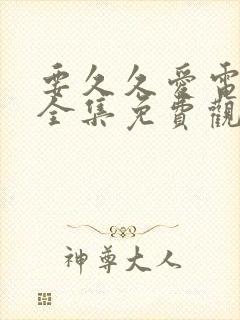 要久久愛電
全集免費觀
神尊大人